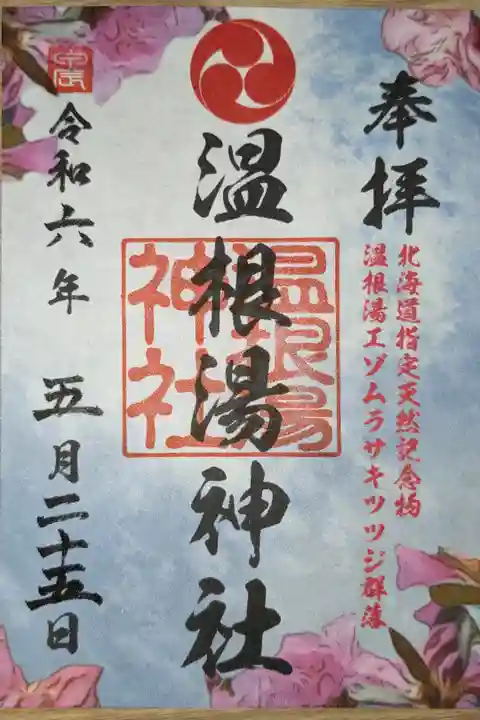 奉拝
北海道指定天然記念物
温根湯エゾムラサキツツジ群落
温根湯神社
温根湯
神社
令和六年 五月二十五日